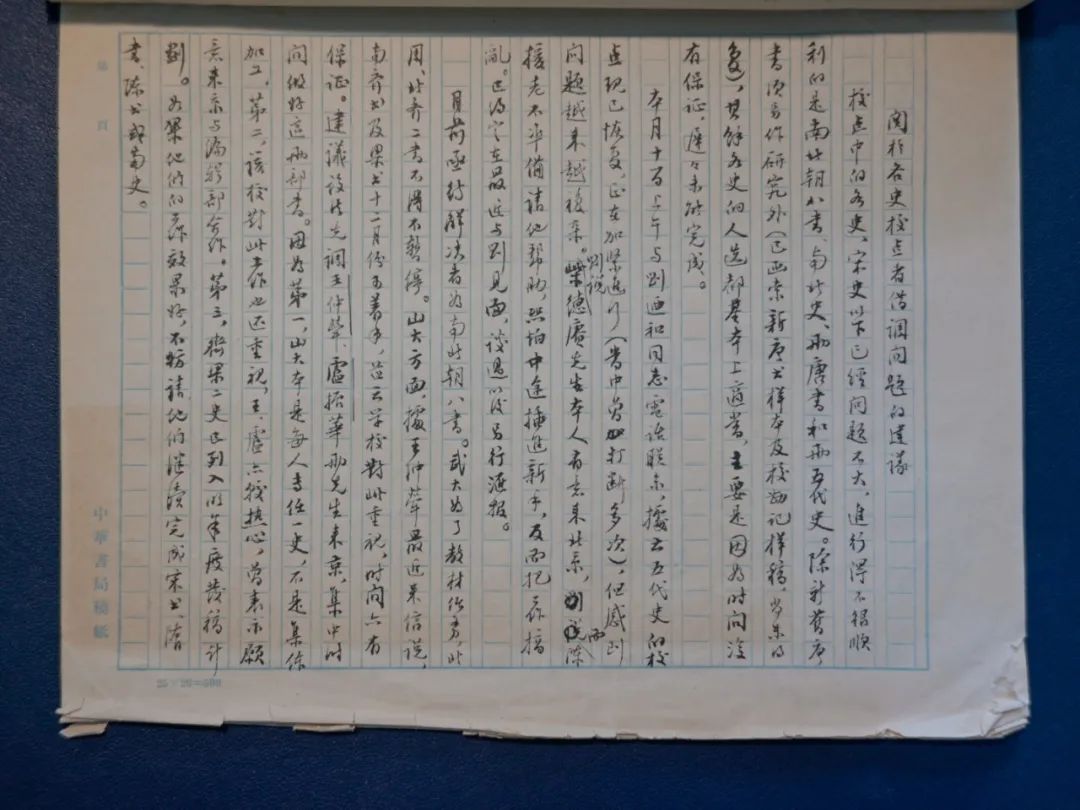 关于各史校点者借调问题的建议
校点中的各史，宋史以下已经问题不大，进行得不很顺
利的是南北朝八书、南北史、两唐书和两五代史。除新旧唐
书须另作研究外（已函索新唐书样本及校勘记样稿，尚未的
复），其余各史的人选都基本上适当，主要是因为时间没
有保证，迟迟未能完成。
本月十日上午与刘迺和同志电话联系，据云五代史的校
点现已恢复，正在加紧进行（当中曾打断多次），但感到
问题越来越复杂。刘说柴德赓先生本人有意来北京，而陈
援老不准备请他帮助，恐怕中途插进新手，反而把工作搞
乱。已约定在最近与刘见面，谈过以后另行汇报。
目前亟待解决者为南北朝八书。武大为了教材任务，北
周、北齐二书不得不暂停。山大方面，据王仲荦最近来信说，
南齐书及梁书十二月份可着手，并云学校对此重视，时间亦有
保证。建议设法先调王仲荦、卢振华两先生来京，集中时
间做好这两部书。因为第一，山大本是每人专任一史，不是集体
加工，第二，该校对此工作也还重视，王、卢亦较热心，曾表示愿
意来京与编辑部合作。第三，齐梁二史已列入明年度发稿计
划。如果他们的工作效果好，不妨请他们继续完成宋书、陈
书或南史。
第　页
中华书局稿纸
25×20=500